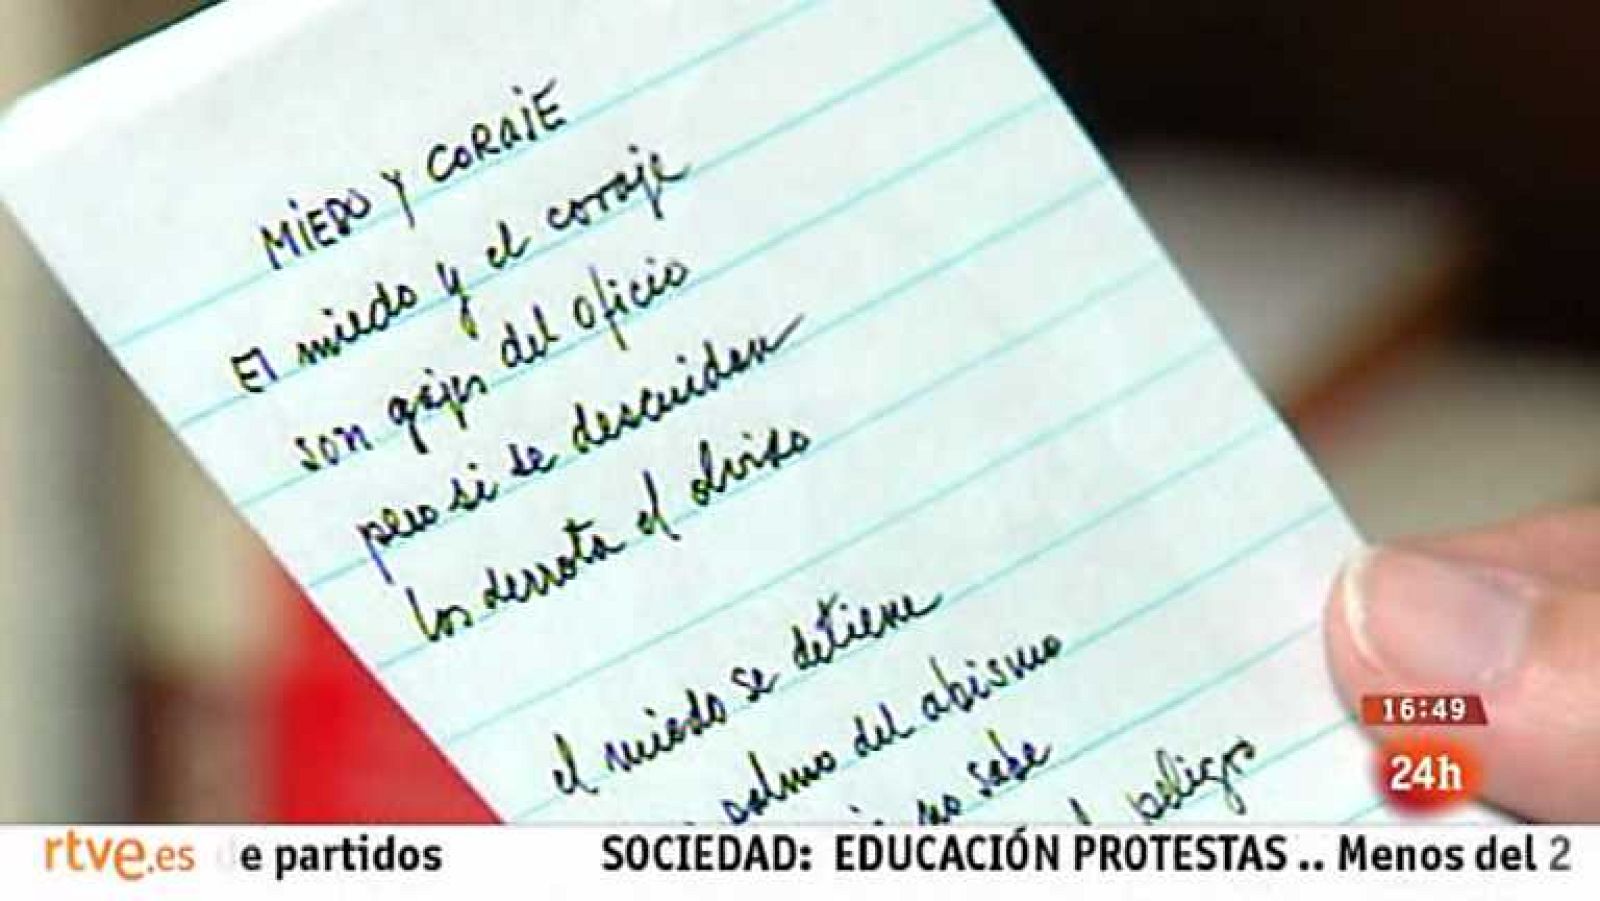 MIEDO Y CORAJE
El miedo y el coraje
son gajes del oficio
pero si se descuidan
los derrota el olvido
el miedo se detiene
salmo del abismo
no sabe
peligro
16:49
24h
rtve.es e partidos SOCIEDAD: EDUCACIÓN PROTESTAS .. Menos del 2